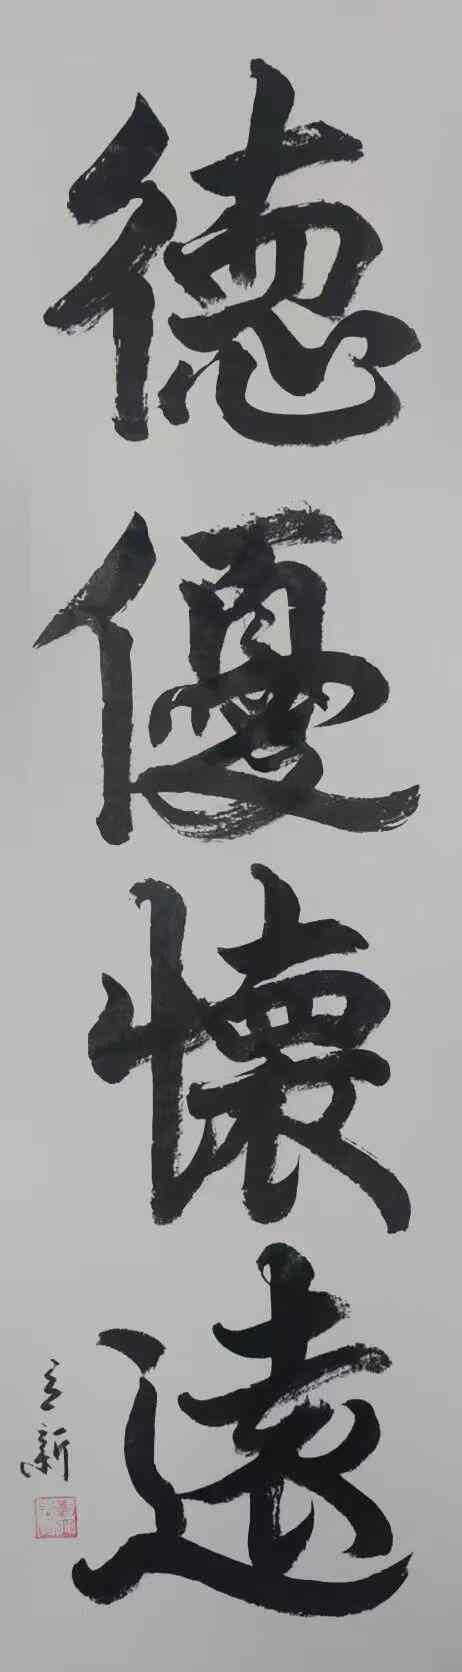 德優懷遠
立新